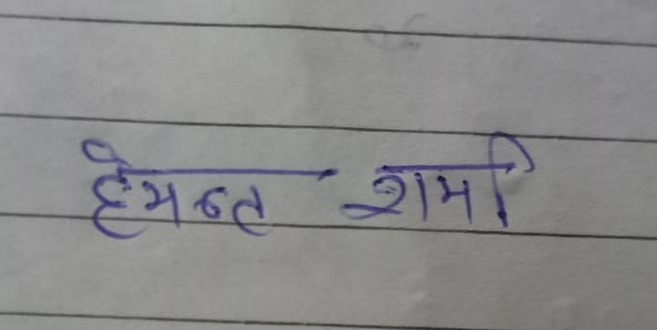 हेमन्त शर्मा